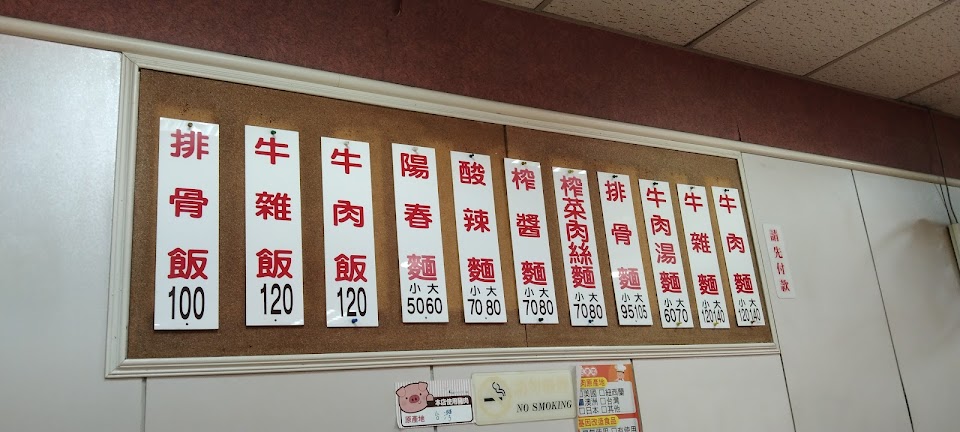 牛肉麵
小 大
120 140
牛雜麵
小 大
120 140
牛肉湯麵
小 大
60 70
排骨麵
小 大
95 105
榨菜肉絲麵
小 大
70 80
榨醬麵
小 大
70 80
酸辣麵
小 大
70 80
陽春麵
小 大
50 60
牛肉飯
120
牛雜飯
120
排骨飯
100
請先付款
本店使用豬肉
原產地
台灣
NO SMOKING
肉原產地
美國 □紐西蘭
澳洲 □台灣
□日本 □其他
基因改造食品
□有使用